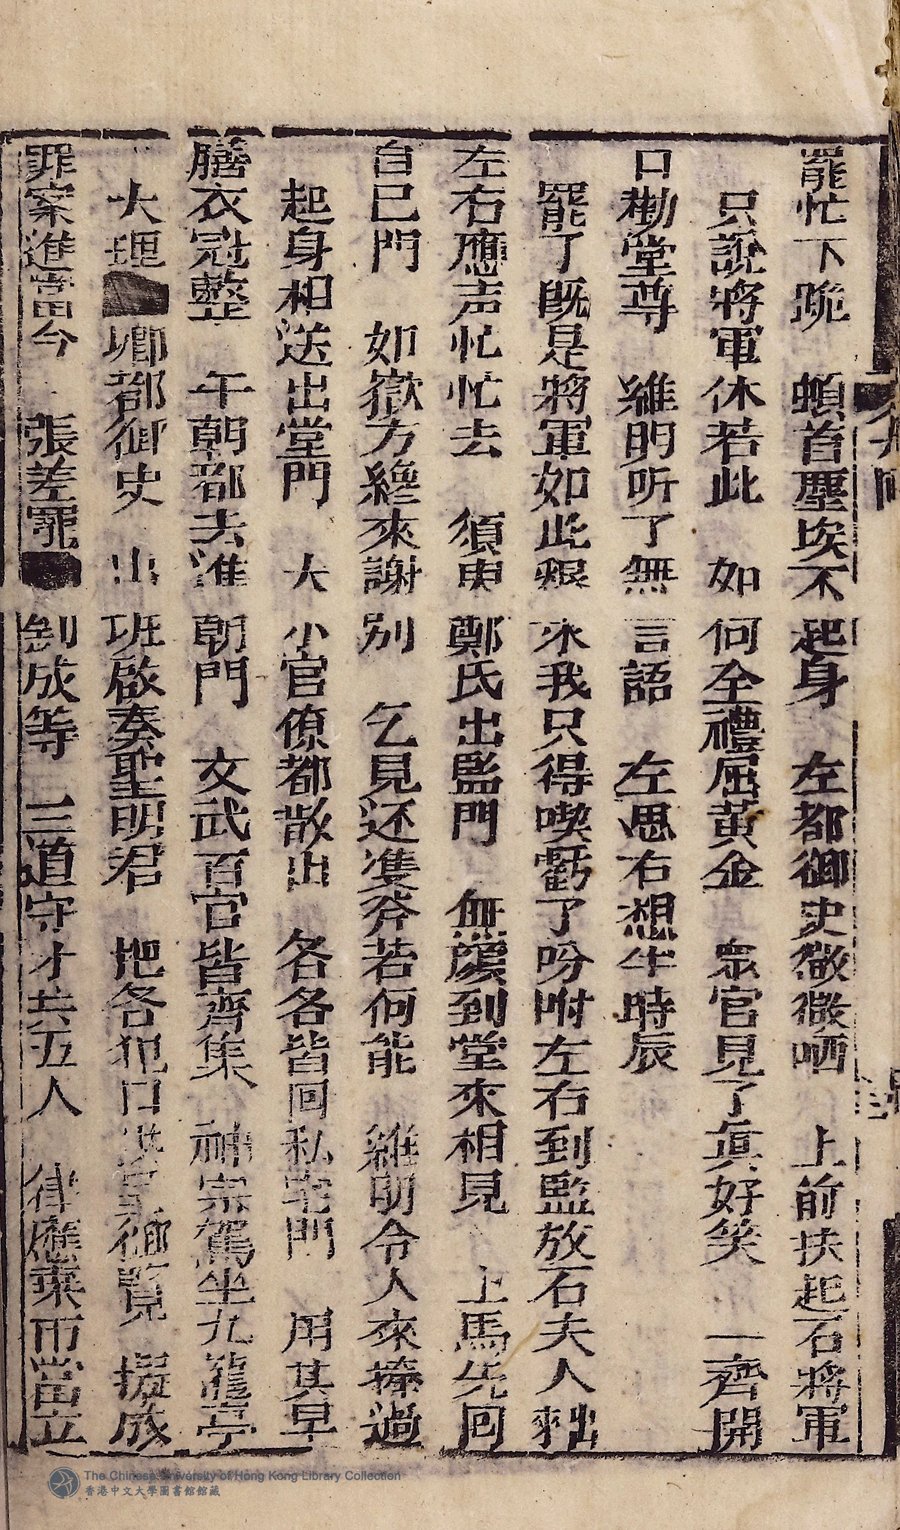 罷忙下跪　蝢首塵埃不起身　左都御史微微哂　上前扶起石將軍
只説將軍休若此　如何全禮屈黄金　衆官見了眞好笑　一齊開
口勸堂尊　維明听了無言語　左思右想半時辰
罷了既是將軍如此狠來我只得喫虧了吩咐左右到監放石夫人出
左右應声忙忙去　須臾鄭氏出監門　無顔到堂來相見　上馬先回
自己門　如嶽方纔來謝別　乞見还隻斧若何能　維明令人來捧過
起身相送出堂門　大小官僚都散出　各各皆回私宅門　用其早
膳衣冠整　午朝都去進朝門　文武百官皆齊集　神宗駕坐九龍亭
大理卿都御史　出班啟奏聖明君　把各犯口呈御覽　擬成
罪案進當今　張差罷劉成等　三道守才共五人　律應棄市當立
The Chinese University of Hong Kong Library Collection
香港中文大學圖書館館藏